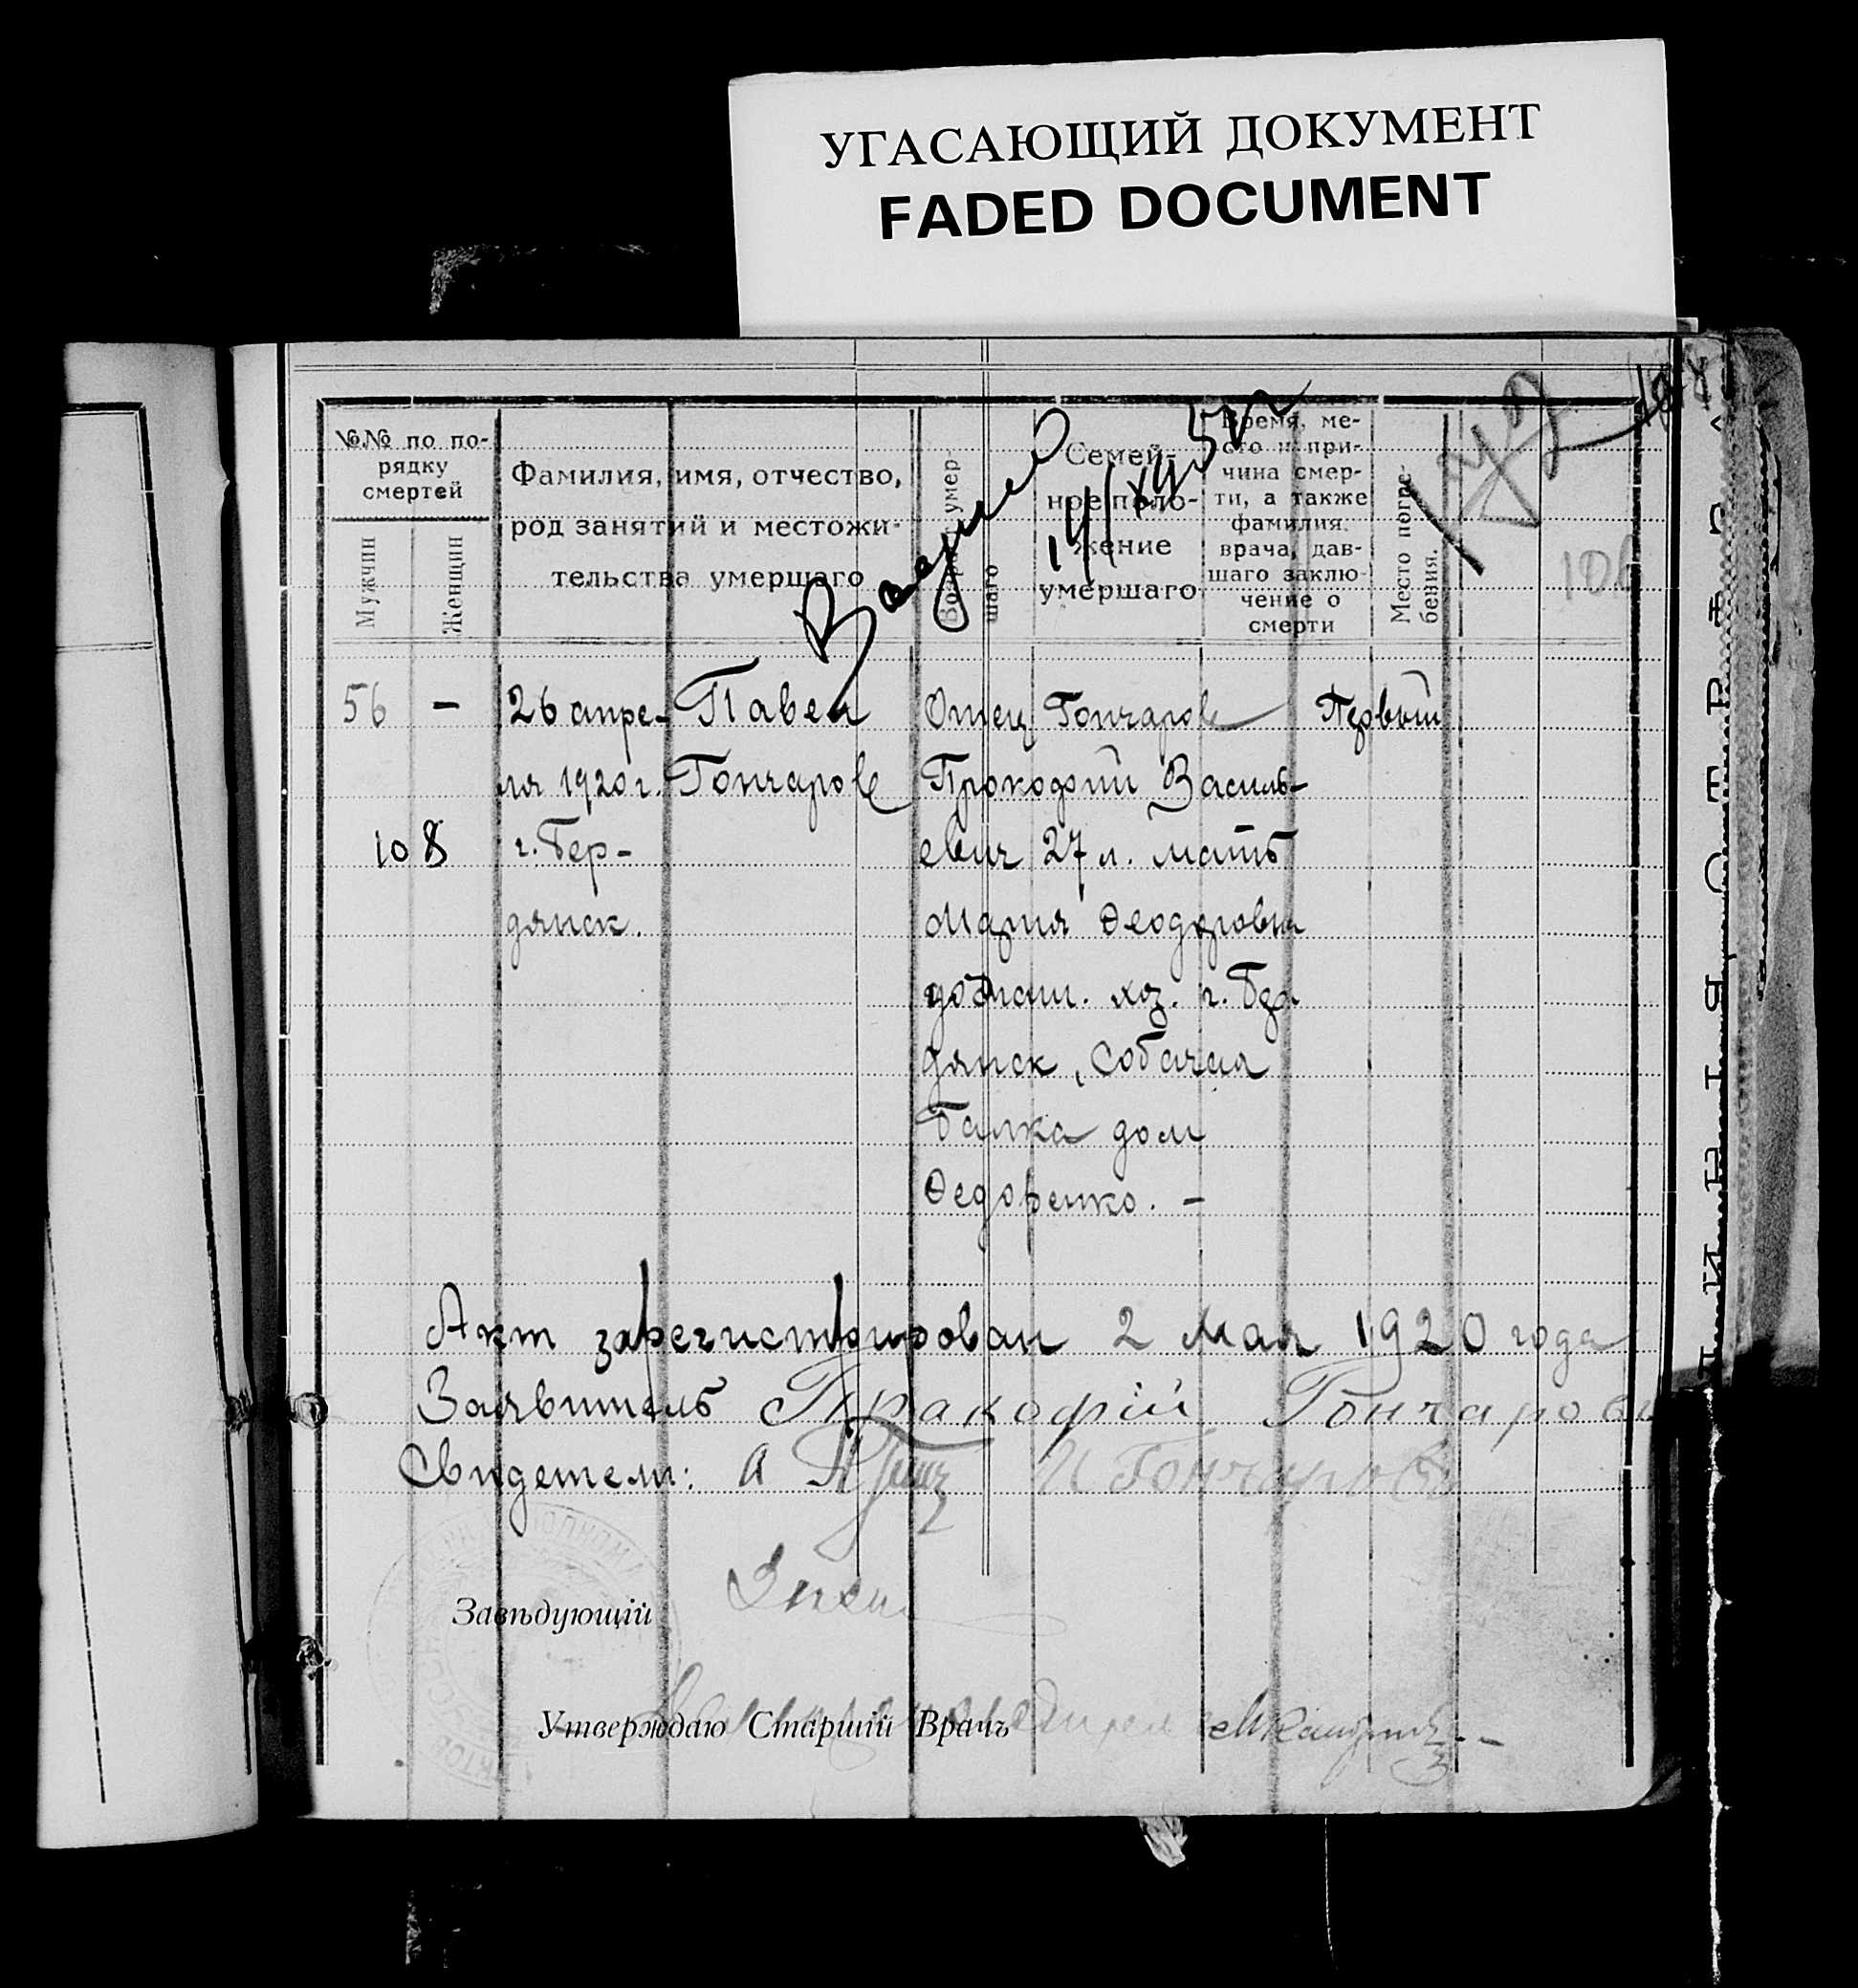 УГАСАЮЩИЙ ДОКУМЕНТ
FADED DOCUMENT
№№ по по-
рядку
смертей
Мужчин
Женщин
Фамилия, имя, отчество,
род занятий и местожи-
тельства умершаго
Возраст умер-
шаго
Семей-
ное поло-
жение
умершаго
Время, ме-
сто и при-
чина смер-
ти, а также
фамилия
врача, дав-
шаго заклю-
чение о
смерти
Место погре-
бения.
106
56 — 26 апре- Павел Отец Гончаров Первый
ля 1920 г. Гончаров Прокофий Василь-
108 г. Бер- евич 27 л. мать
дянск. Мария Феодоровна
домаш. хоз. г. Бер
дянск, Собачая
балка дом
Федоренко. —
Акт зарегистрирован 2 мая 1920 года
Заявитель Пракофій Гончаровъ
Свидетели: А И Гончаровъ
Завѣдующій
Утверждаю Старшій Врачъ